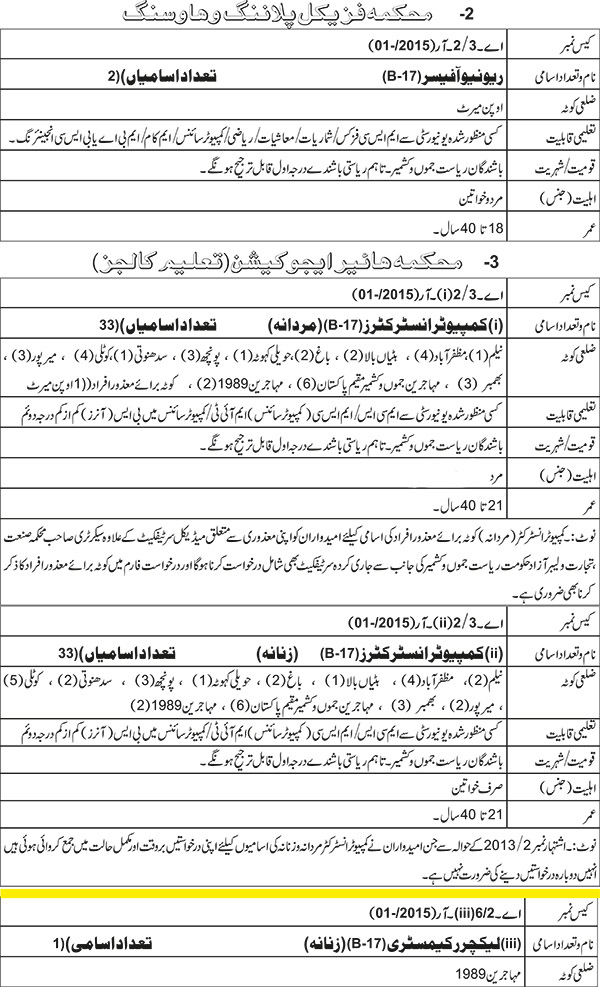 2- محکمہ فزیکل پلاننگ و ہاوسنگ
کیس نمبر اے۔2/3۔آر(2015/-01)
نام و تعداد اسامی ریونیو آفیسر (B-17) تعداد اسامیاں)(2
ضلعی کوٹہ اوپن میرٹ
تعلیمی قابلیت کسی منظور شدہ یونیورسٹی سے ایم ایس سی فزکس/شماریات/معاشیات/ریاضی/کمپیوٹر سائنس/ایم کام/ایم بی اے یا بی ایس سی انجینئرنگ۔
قومیت/شہریت باشندگان ریاست جموں و کشمیر۔ تاہم ریاستی باشندے درجہ اول قابل ترجیح ہونگے۔
اہلیت (جنس) مرد و خواتین
عمر 18 تا 40 سال۔
3- محکمہ ہائیر ایجوکیشن (تعلیم کالجز)
کیس نمبر اے۔2/3(i)۔آر(2015/-01)
نام و تعداد اسامی (i) کمپیوٹر انسٹرکٹرز (B-17) (مردانہ) تعداد اسامیاں)(33
ضلعی کوٹہ نیلم(1)، مظفرآباد(4) ، ہٹیاں بالا(2) ، باغ(2)، حویلی کہوٹہ(1) ، پونچھ(3) ، سدھنوتی(1)، کوٹلی(4) ، میرپور(3) ،
بھمبر (3) ، مہاجرین جموں و کشمیر مقیم پاکستان(6) ، مہاجرین 1989(2) ، کوٹہ برائے معذور افراد((1 اوپن میرٹ
تعلیمی قابلیت کسی منظور شدہ یونیورسٹی سے ایم سی ایس/ایم ایس سی (کمپیوٹر سائنس) ایم آئی ٹی/کمپیوٹر سائنس میں بی ایس (آنرز) کم از کم درجہ دوئم
قومیت/شہریت باشندگان ریاست جموں و کشمیر۔ تاہم ریاستی باشندے درجہ اول قابل ترجیح ہونگے۔
اہلیت (جنس) مرد
عمر 21 تا 40 سال۔
نوٹ:۔ کمپیوٹر انسٹرکٹر (مردانہ) کوٹہ برائے معذور افراد کی اسامی کیلئے امیدواران کو اپنی معذوری سے متعلق میڈیکل سرٹیفکیٹ کے علاوہ سیکرٹری صاحب محکمہ صنعت
، تجارت و لیبر آزاد حکومت ریاست جموں و کشمیر کی جانب سے جاری کردہ سرٹیفکیٹ بھی شامل درخواست کرنا ہو گا اور درخواست فارم میں کوٹہ برائے معذور افراد کا ذکر
کرنا بھی ضروری ہے۔
کیس نمبر اے۔2/3(ii)۔آر(2015/-01)
نام و تعداد اسامی (ii) کمپیوٹر انسٹرکٹرز (B-17) (زنانہ) تعداد اسامیاں)(33
ضلعی کوٹہ نیلم(2)، مظفرآباد(4) ، ہٹیاں بالا(1) ، باغ(2) ، حویلی کہوٹہ(1) ، پونچھ(3) ، سدھنوتی(2) ، کوٹلی(5)
، میرپور(2) ، بھمبر (3) ، مہاجرین جموں و کشمیر مقیم پاکستان(6) ، مہاجرین 1989(2)
تعلیمی قابلیت کسی منظور شدہ یونیورسٹی سے ایم سی ایس/ایم ایس سی (کمپیوٹر سائنس) ایم آئی ٹی/کمپیوٹر سائنس میں بی ایس (آنرز) کم از کم درجہ دوئم
قومیت/شہریت باشندگان ریاست جموں و کشمیر۔ تاہم ریاستی باشندے درجہ اول قابل ترجیح ہونگے۔
اہلیت (جنس) صرف خواتین
عمر 21 تا 40 سال۔
نوٹ:۔ اشتہار نمبر 2013/2 کے حوالہ سے جن امیدواران نے کمپیوٹر انسٹرکٹر مردانہ و زنانہ کی اسامیوں کیلئے اپنی درخواستیں بروقت اور مکمل حالت میں جمع کروائی ہوئی ہیں
انہیں دوبارہ درخواستیں دینے کی ضرورت نہیں ہے۔
کیس نمبر اے۔6/2(iii)۔آر(2015/-01)
نام و تعداد اسامی (iii) لیکچرر کیمسٹری (B-17) (زنانہ) تعداد اسامی)(1
ضلعی کوٹہ مہاجرین 1989